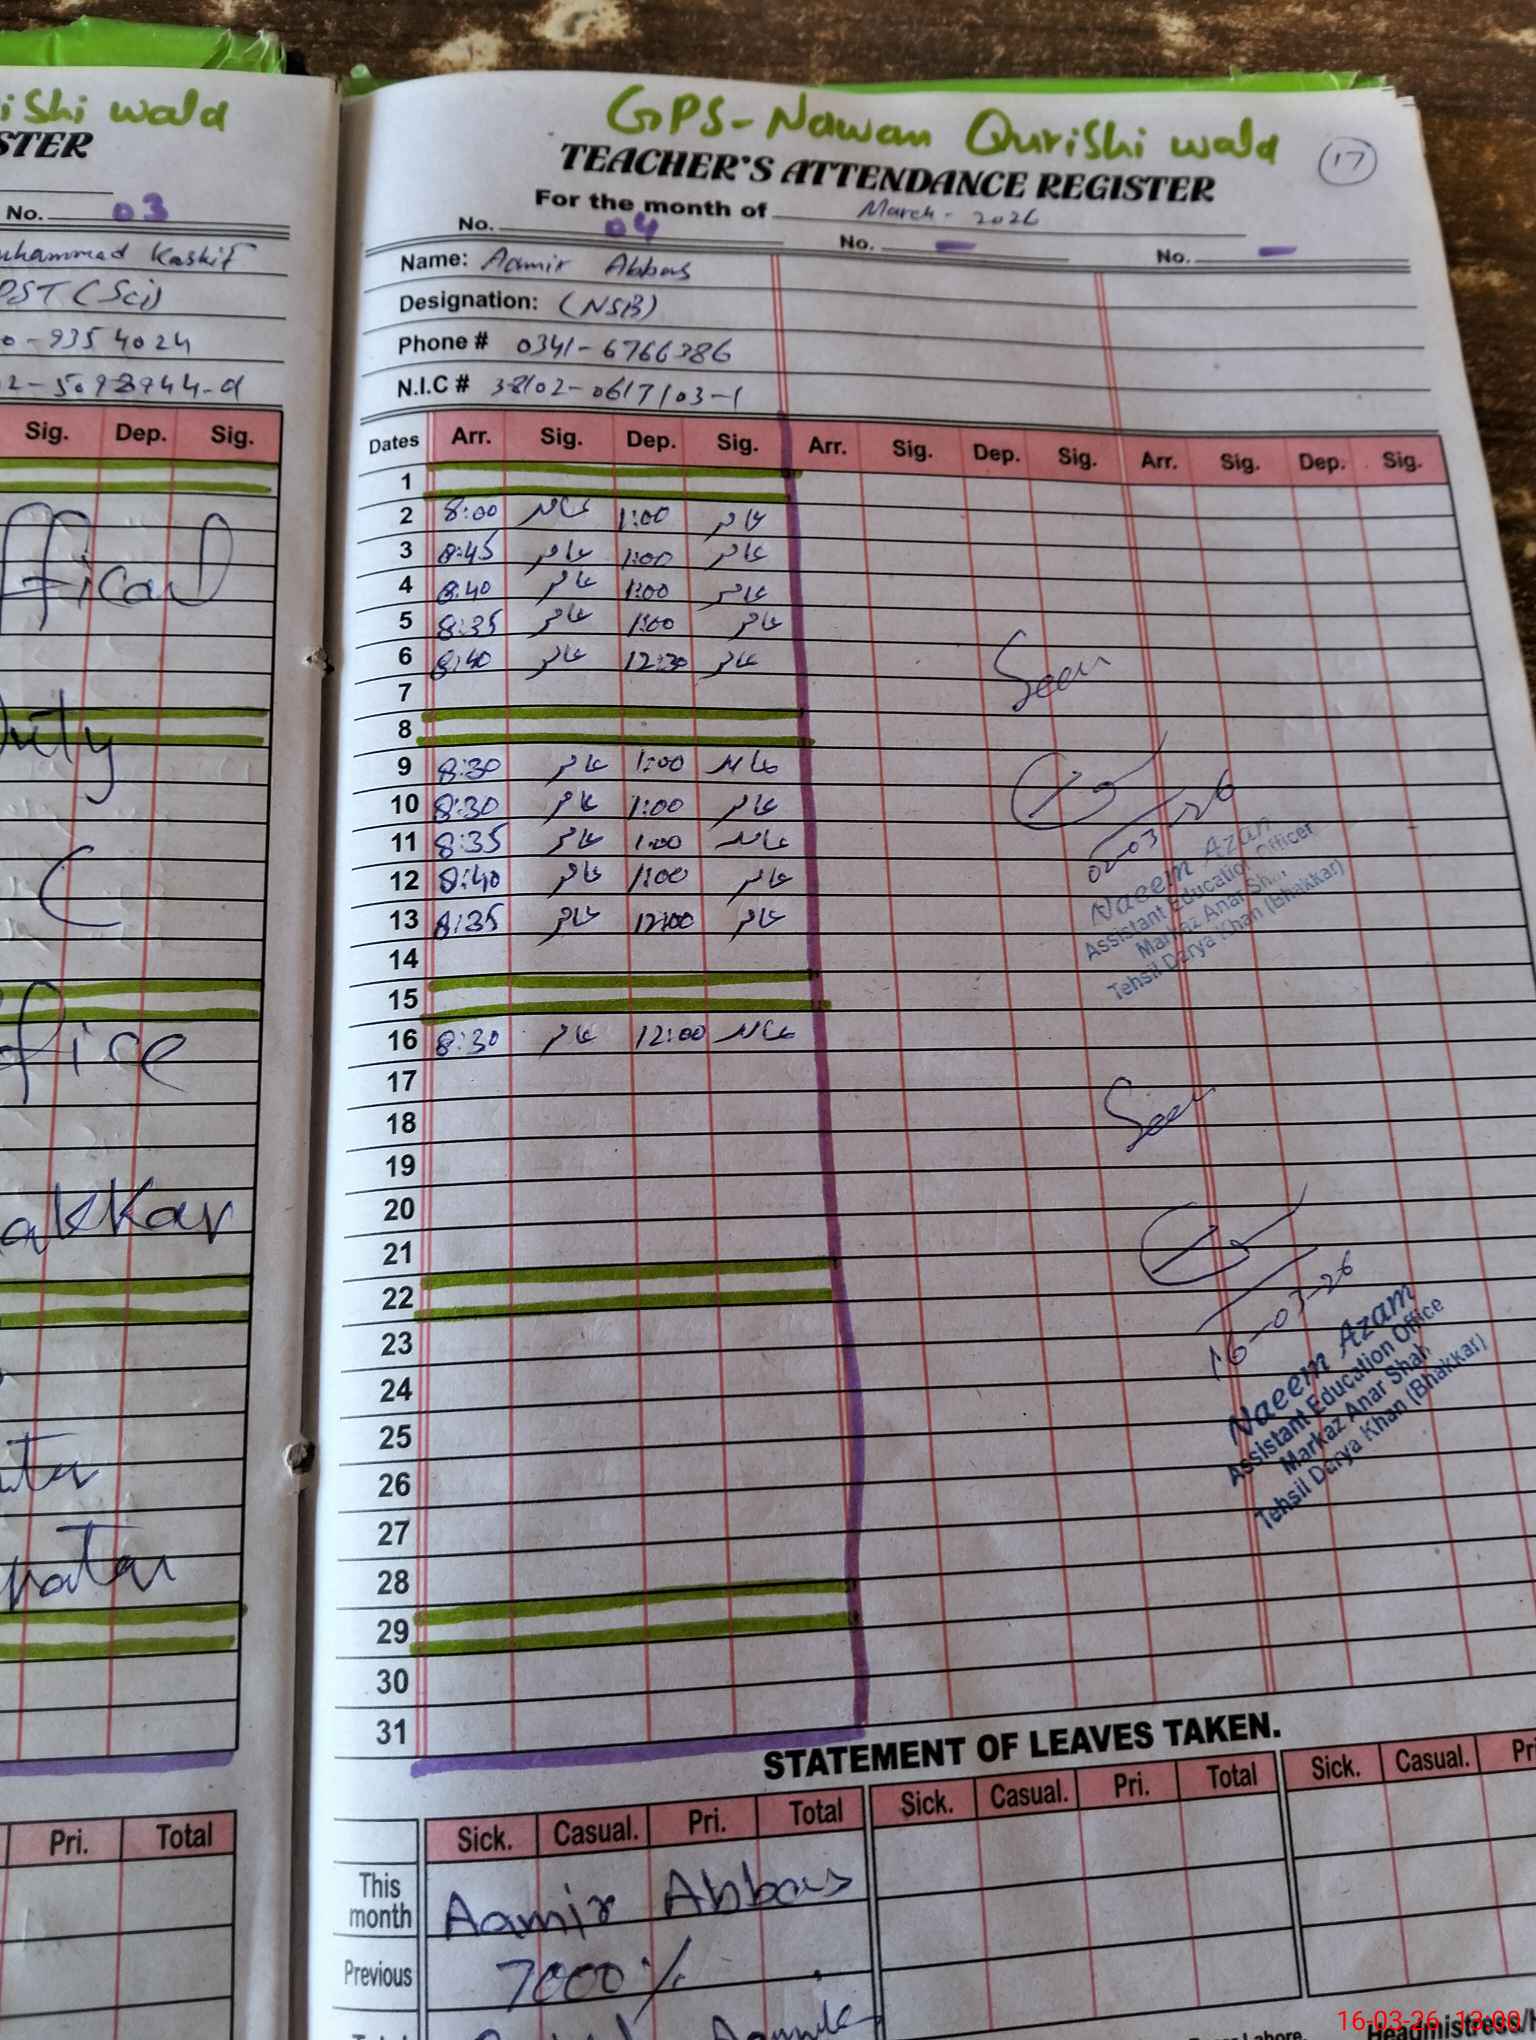 iShi wala
STER
No. 03
uhammad Kashif
PST (Sci)
0-935 4024
2-5098944-9
Sig. Dep. Sig.
ffical
Duty
C
ffice
akkar
Pri. Total
GPS-Nawan QuriShi wala
17
TEACHER'S ATTENDANCE REGISTER
For the month of March-2026
No. 04 No. - No. -
Name: Aamir Abbas
Designation: (NSB)
Phone # 0341-6766386
N.I.C # 38102-0617103-1
Dates Arr. Sig. Dep. Sig. Arr. Sig. Dep. Sig. Arr. Sig. Dep. Sig.
1
2 8:00 عامر 1:00 عامر
3 8:45 عامر 1:00 عامر
4 8:40 عامر 1:00 عامر
5 8:35 عامر 1:00 عامر
6 8:40 عامر 12:30 عامر
7
Seen
8
9 8:30 عامر 1:00 عامر
10 8:30 عامر 1:00 عامر
11 8:35 عامر 1:00 عامر
02-03-26
12 8:40 عامر 1:00 عامر
13 8:35 عامر 12:00 عامر
Naeem Azam
Assistant Education Officer
Markaz Anar Sh
Tehsil Darya Khan (Bhakkar)
14
15
16 8:30 عامر 12:00 عامر
17
18
Seen
19
20
21
22
23
16-03-26
24
Naeem Azam
Assistant Education Office
Markaz Anar Shah
Tehsil Darya Khan (Bhakkar)
25
26
27
28
29
30
31
STATEMENT OF LEAVES TAKEN.
Sick. Casual. Pri. Total Sick. Casual. Pri. Total Sick. Casual. Pri
This month Aamir Abbas
Previous 7000/.
Lahore.
Headmistress/H
16-03-26 13:00